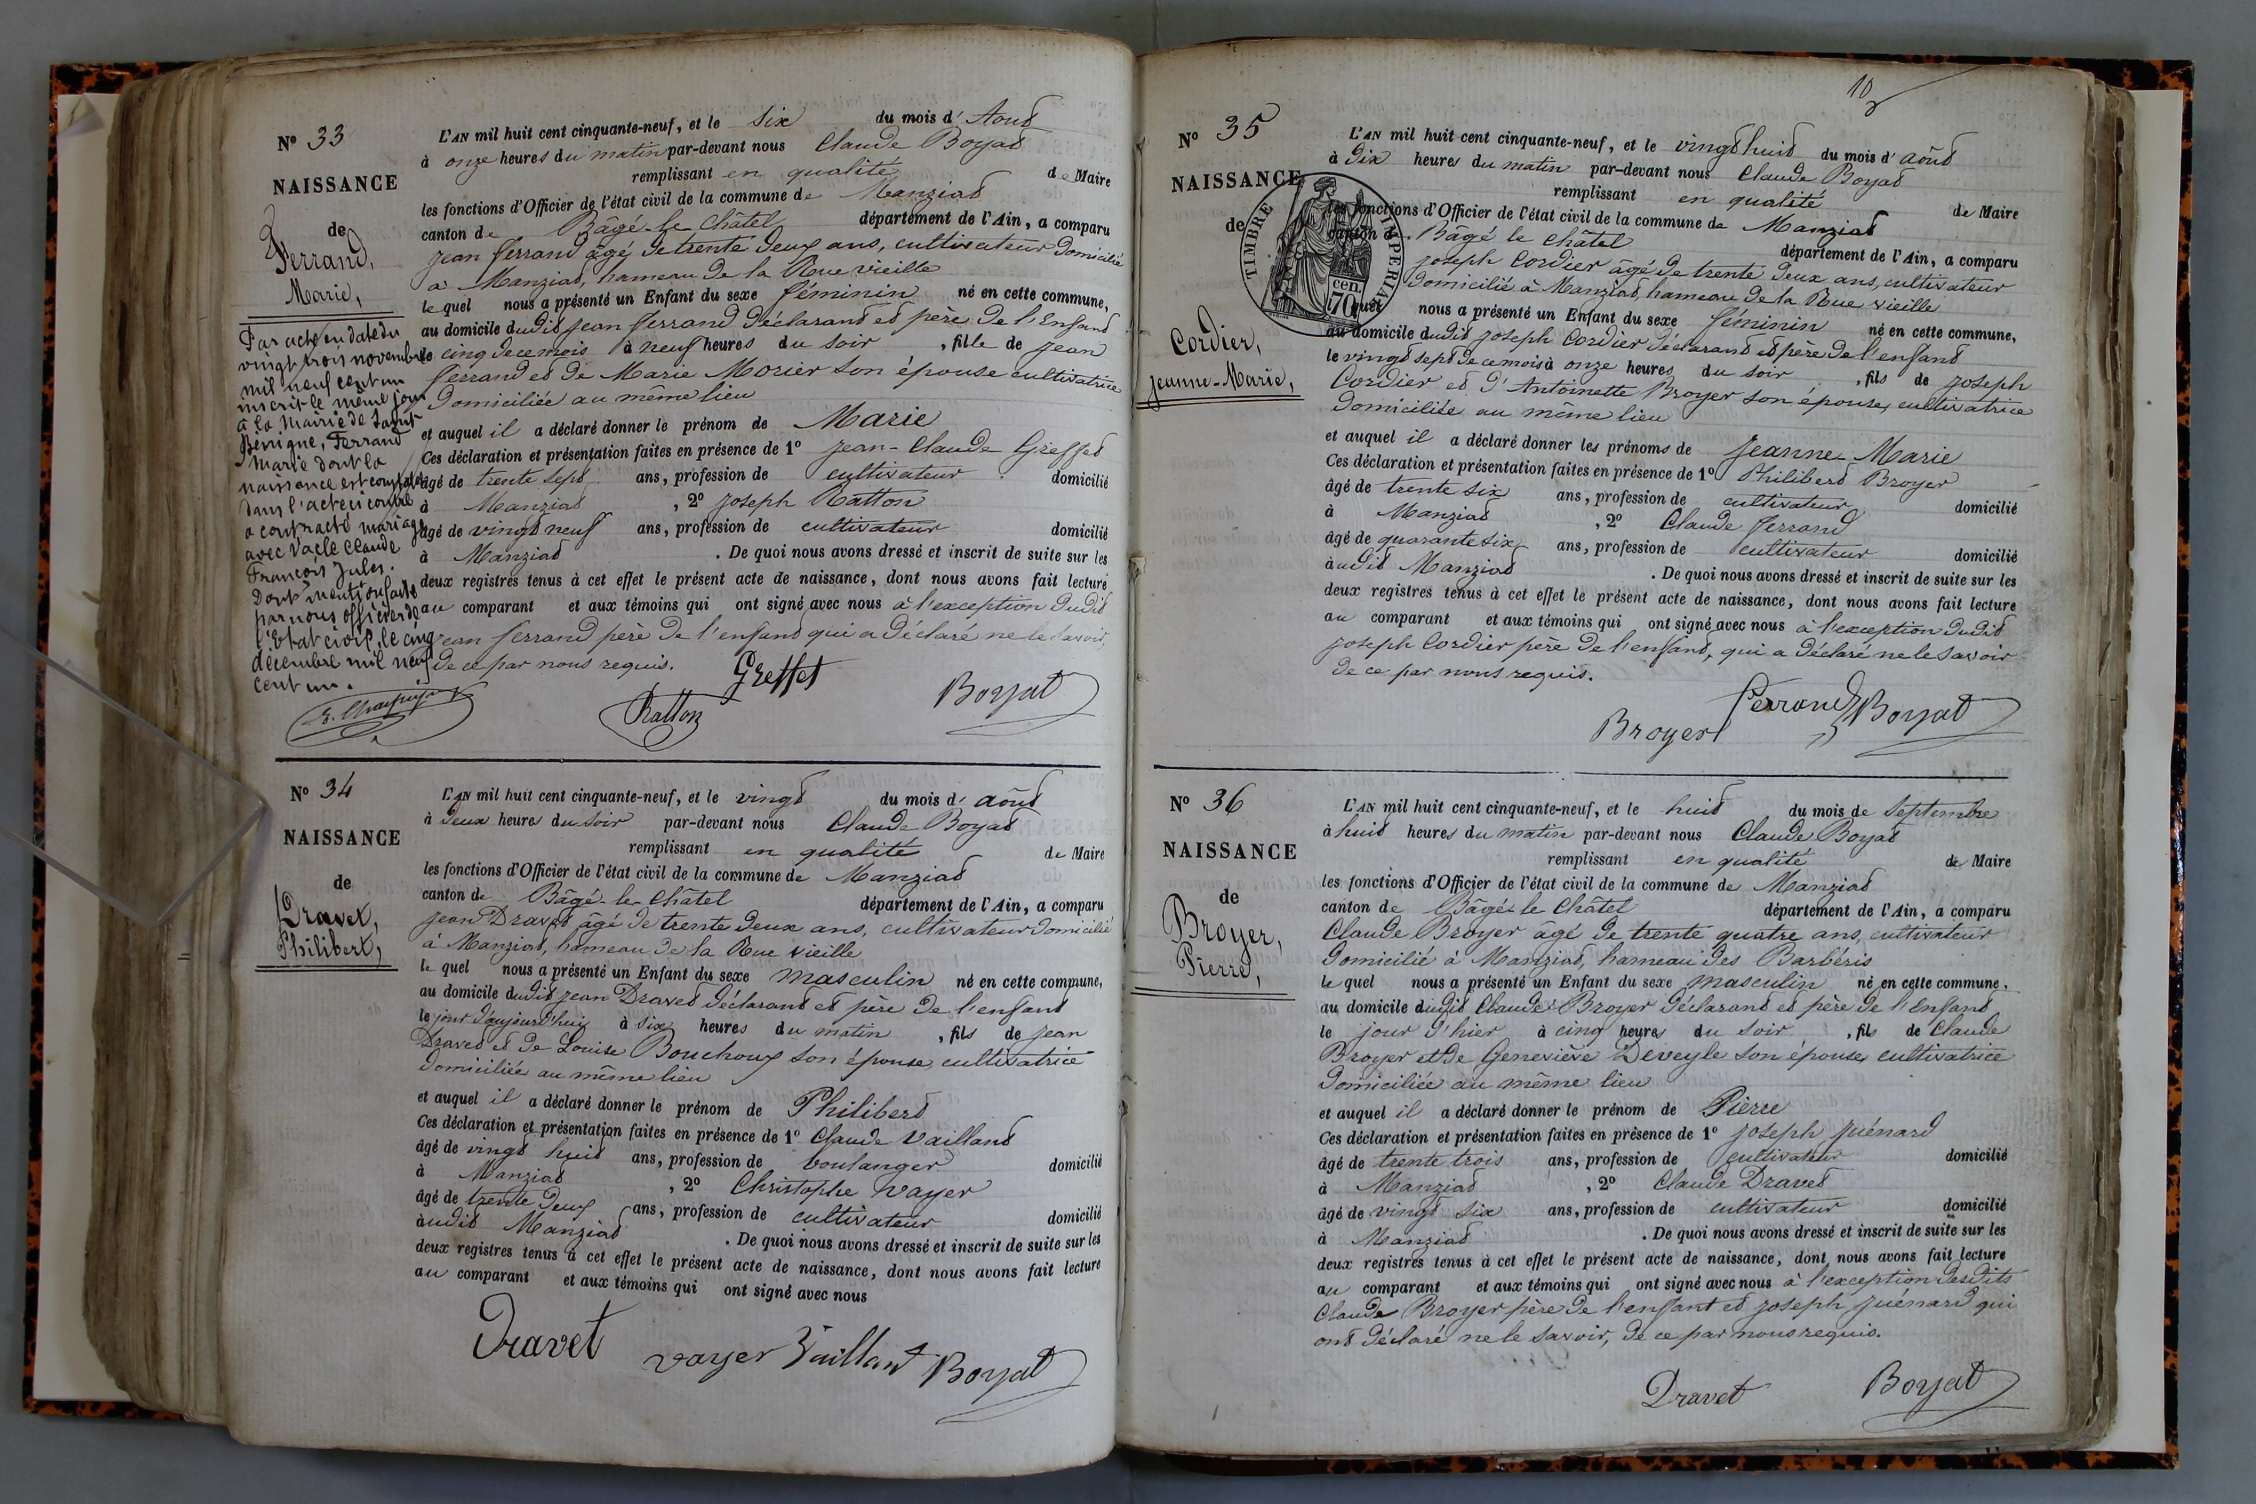 N° 33
NAISSANCE
de
Ferrand,
Marie,
Par acte en date du
vingt trois novembre
mil neuf cent un
inscrit le même jour
à la Mairie de Saint
Bénigne, Ferrand
Marie dont la
naissance est constatée
dans l'acte ci contre
a contracté mariage
avec Vacle Claude
François Jules.
Dont mention faite
par nous officier de
l'Etat civil, le cinq
décembre mil neuf
cent un.
L'AN mil huit cent cinquante-neuf, et le six du mois d'Aout
à onze heures du matin par-devant nous Claude Boyat
remplissant en qualité de Maire
les fonctions d'Officier de l'état civil de la commune de Manziat
canton de Bâgé-le Châtel département de l'Ain, a comparu
jean ferrand âgé de trente deux ans, cultivateur domicilié
à Manziat, hameau de la Rue vieille
lequel nous a présenté un Enfant du sexe féminin né en cette commune,
au domicile dudit jean ferrand déclarant et père de l'Enfant
le cinq de ce mois à neuf heures du soir, fille de jean
ferrand et de Marie Morier son épouse cultivatrice
domiciliée au même lieu
et auquel il a déclaré donner le prénom de Marie
Ces déclaration et présentation faites en présence de 1° jean-Claude Greffet
âgé de trente sept ans, profession de cultivateur domicilié
à Manziat, 2° joseph Ratton
âgé de vingt neuf ans, profession de cultivateur domicilié
à Manziat. De quoi nous avons dressé et inscrit de suite sur les
deux registres tenus à cet effet le présent acte de naissance, dont nous avons fait lecture
au comparant et aux témoins qui ont signé avec nous à l'exception dudit
jean ferrand père de l'enfant qui a déclaré ne le savoir,
de ce par nous requis.
Greffet
Ratton Boyat
N° 34
NAISSANCE
de
Dravet,
Philibert,
L'AN mil huit cent cinquante-neuf, et le vingt du mois d'août
à deux heures du soir par-devant nous Claude Boyat
remplissant en qualité de Maire
les fonctions d'Officier de l'état civil de la commune de Manziat
canton de Bâgé-le-Châtel département de l'Ain, a comparu
jean Dravet âgé de trente deux ans, cultivateur domicilié
à Manziat, hameau de la Rue vieille
lequel nous a présenté un Enfant du sexe masculin né en cette commune,
au domicile dudit jean Dravet déclarant et père de l'enfant
le jour d'aujourd'hui à six heures du matin, fils de jean
Dravet et de Louise Bouchoux son épouse, cultivatrice
domiciliée au même lieu
et auquel il a déclaré donner le prénom de Philibert
Ces déclaration et présentation faites en présence de 1° Claude Vaillant
âgé de vingt huit ans, profession de boulanger domicilié
à Manziat, 2° Christophe Vayer
âgé de trente deux ans, profession de cultivateur domicilié
audit Manziat. De quoi nous avons dressé et inscrit de suite sur les
deux registres tenus à cet effet le présent acte de naissance, dont nous avons fait lecture
au comparant et aux témoins qui ont signé avec nous
Dravet vayer Vaillant Boyat
10
N° 35
NAISSANCE
de
Cordier,
jeanne-Marie,
TIMBRE IMPERIAL
70 cen.
L'AN mil huit cent cinquante-neuf, et le vingt huit du mois d'août
à dix heures du matin par-devant nous Claude Boyat
remplissant en qualité de Maire
les fonctions d'Officier de l'état civil de la commune de Manziat
canton de Bâgé le Châtel département de l'Ain, a comparu
joseph Cordier âgé de trente deux ans, cultivateur
domicilié à Manziat, hameau de la Rue vieille
lequel nous a présenté un Enfant du sexe féminin né en cette commune,
au domicile dudit joseph Cordier déclarant et père de l'enfant
le vingt sept de ce mois à onze heures du soir, fils de joseph
Cordier et d'Antoinette Broyer son épouse, cultivatrice
domiciliée au même lieu
et auquel il a déclaré donner les prénoms de jeanne Marie
Ces déclaration et présentation faites en présence de 1° Philibert Broyer
âgé de trente six ans, profession de cultivateur domicilié
à Manziat, 2° Claude ferrand
âgé de quarante six ans, profession de cultivateur domicilié
audit Manziat. De quoi nous avons dressé et inscrit de suite sur les
deux registres tenus à cet effet le présent acte de naissance, dont nous avons fait lecture
au comparant et aux témoins qui ont signé avec nous à l'exception dudit
joseph Cordier père de l'enfant, qui a déclaré ne le savoir
de ce par nous requis.
Broyer Ferrand Boyat
N° 36
NAISSANCE
de
Broyer,
Pierre,
L'AN mil huit cent cinquante-neuf, et le huit du mois de septembre
à huit heures du matin par-devant nous Claude Boyat
remplissant en qualité de Maire
les fonctions d'Officier de l'état civil de la commune de Manziat
canton de Bâgé-le Châtel département de l'Ain, a comparu
Claude Broyer âgé de trente quatre ans, cultivateur
domicilié à Manziat, hameau des Barbéris
lequel nous a présenté un Enfant du sexe masculin né en cette commune,
au domicile dudit Claude Broyer déclarant et père de l'Enfant
le jour d'hier à cinq heures du soir, fils de Claude
Broyer et de Geneviève Deveyle son épouse, cultivatrice
domiciliée au même lieu
et auquel il a déclaré donner le prénom de Pierre
Ces déclaration et présentation faites en présence de 1° joseph juénard
âgé de trente trois ans, profession de cultivateur domicilié
à Manziat, 2° Claude Dravet
âgé de vingt six ans, profession de cultivateur domicilié
à Manziat. De quoi nous avons dressé et inscrit de suite sur les
deux registres tenus à cet effet le présent acte de naissance, dont nous avons fait lecture
au comparant et aux témoins qui ont signé avec nous à l'exception desdits
Claude Broyer père de l'enfant et joseph juénard qui
ont déclaré ne le savoir, de ce par nous requis.
Dravet Boyat